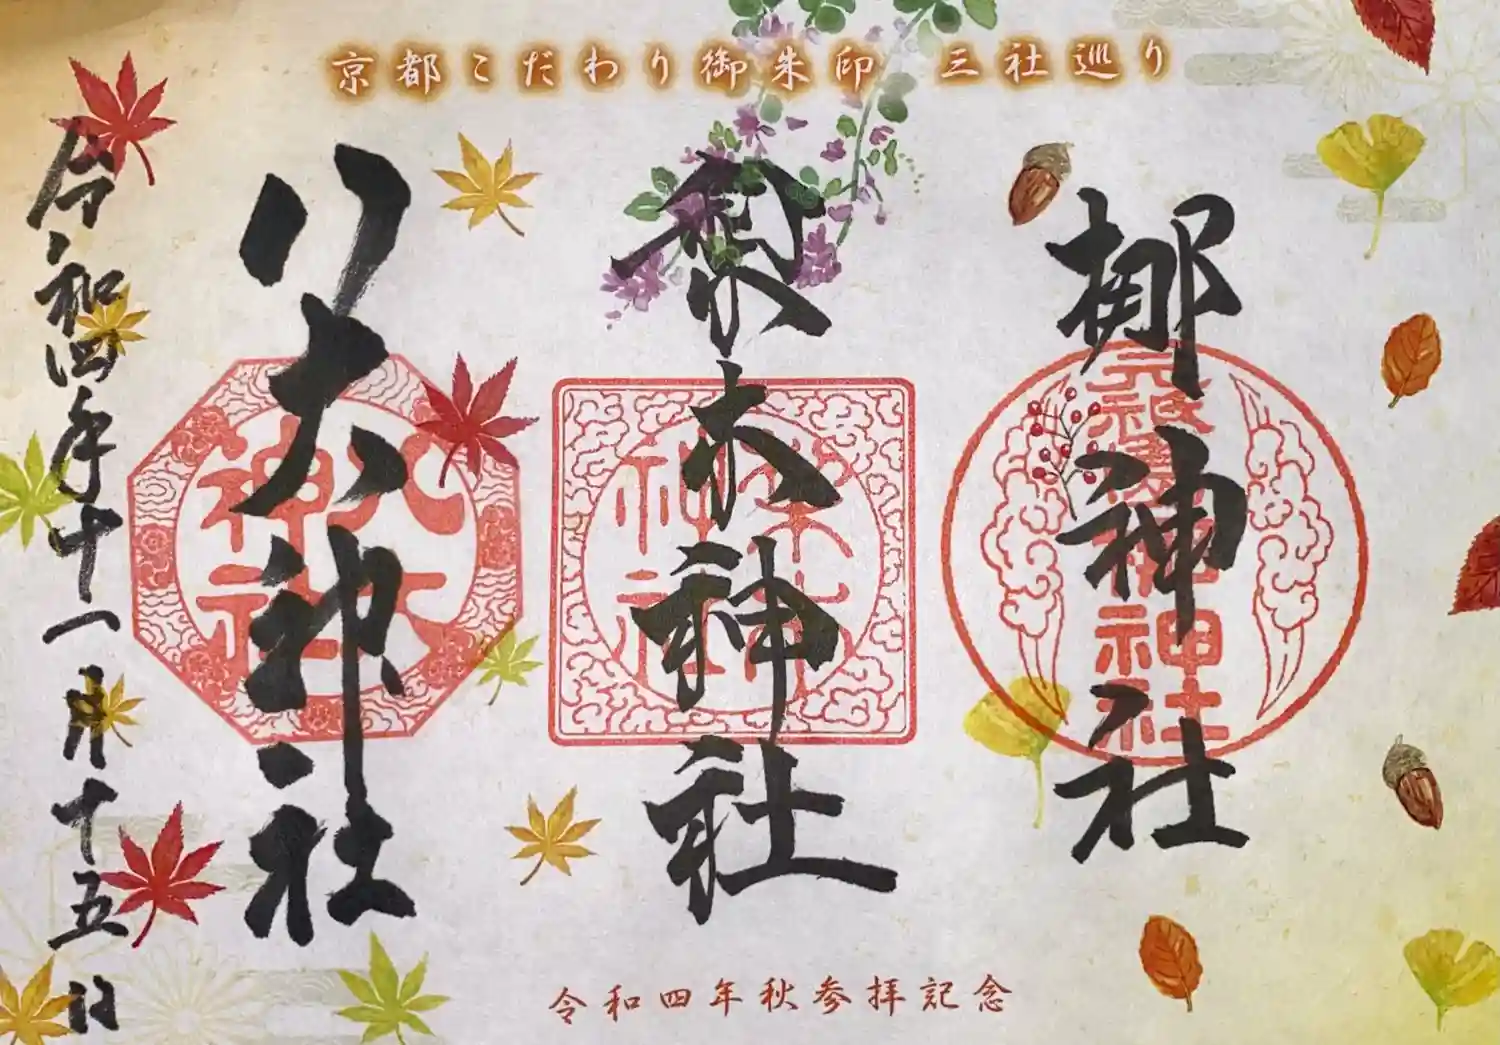 京都こだわり御朱印 三社巡り
梛神社
元祇園梛神社
梨木神社
梨木神社
八大神社
八大神社
令和四年十一月十五日
令和四年秋参拝記念